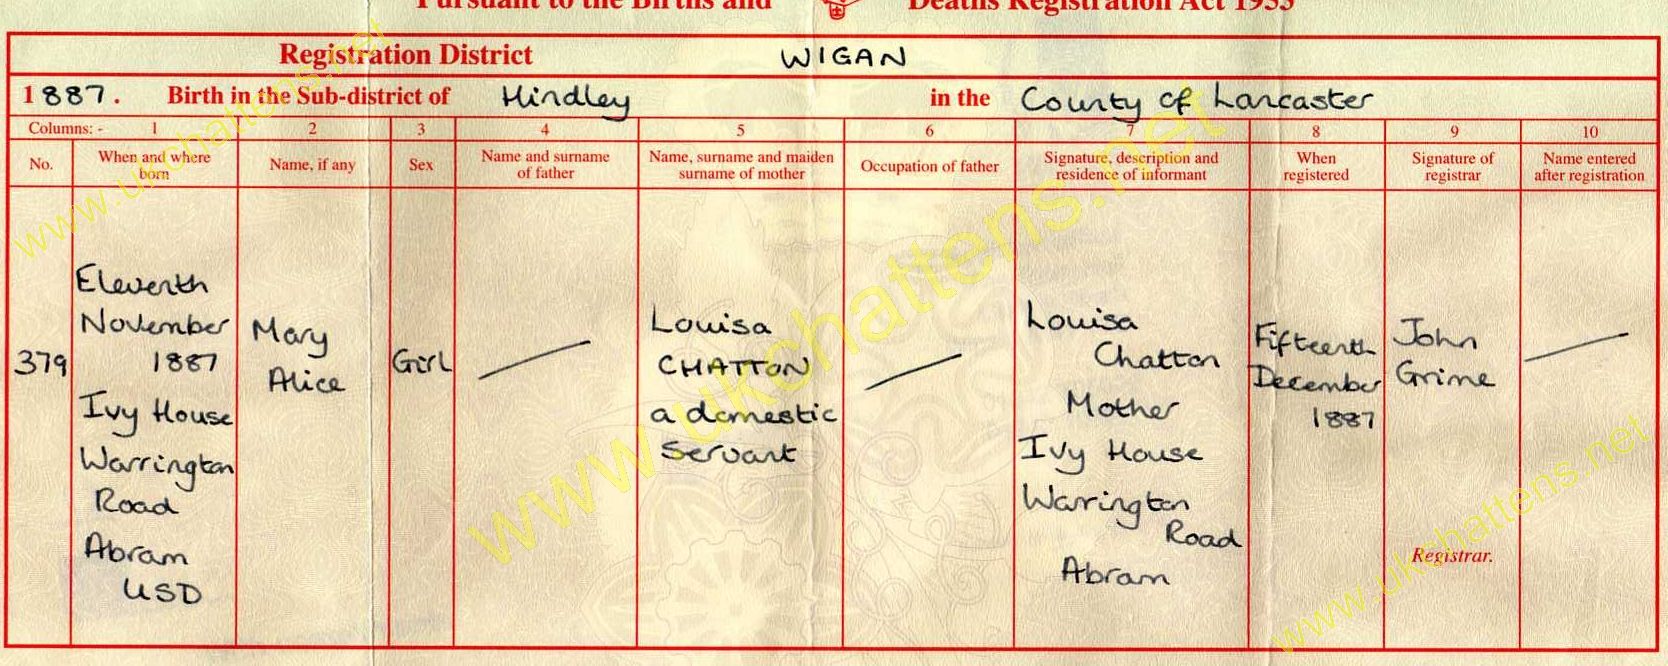 Pursuant to the Births and Deaths Registration Act 1953
Registration District WIGAN
1887. Birth in the Sub-district of Hindley in the County of Lancaster
Columns: - 1 2 3 4 5 6 7 8 9 10
No.
When and where
born
Name, if any
Sex
Name and surname
of father
Name, surname and maiden
surname of mother
Occupation of father
Signature, description and
residence of informant
When
registered
Signature of
registrar
Name entered
after registration
379
Eleventh
November
1887
Ivy House
Warrington
Road
Abram
USD
Mary
Alice
Girl
Louisa
CHATTON
a domestic
Servant
Louisa
Chatton
Mother
Ivy House
Warrington
Road
Abram
Fifteenth
December
1887
John
Grime
Registrar.
www.ukchattens.net
www.ukchattens.net
www.ukchattens.net